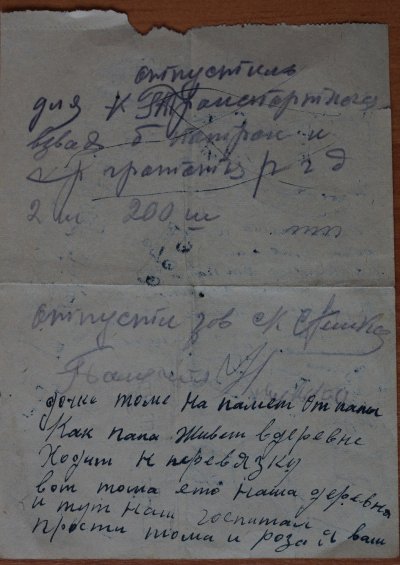 отпустить
для Транспортного
взвод б патрон и
гранаты р г д
2 м 200 ш
отпусти зов ск
дочке томе на памет от папы
Как папа живет вдеревне
Ходит н перевязку
вот тома ето наша деревня
и тут наш госпитал
прости тома и роза я ваш